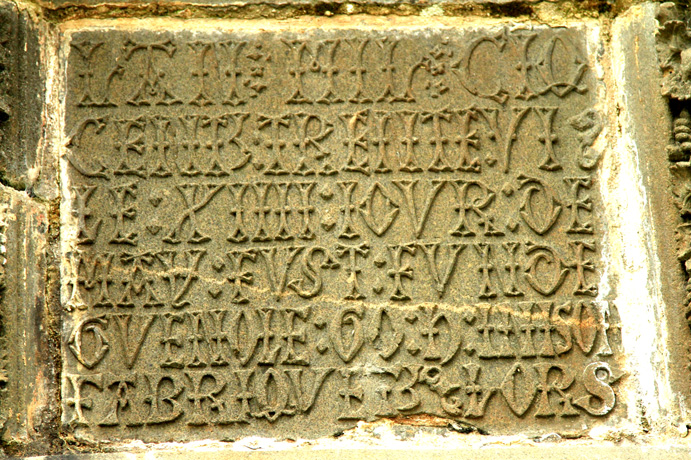 LAN : MIL : CIQ
CENTZ : TRENTE : VI
LE : XIIII : IOVR : DE
MAY : FVST : FVNDE
GVENOLE : GO :
FABRIQVE LORS